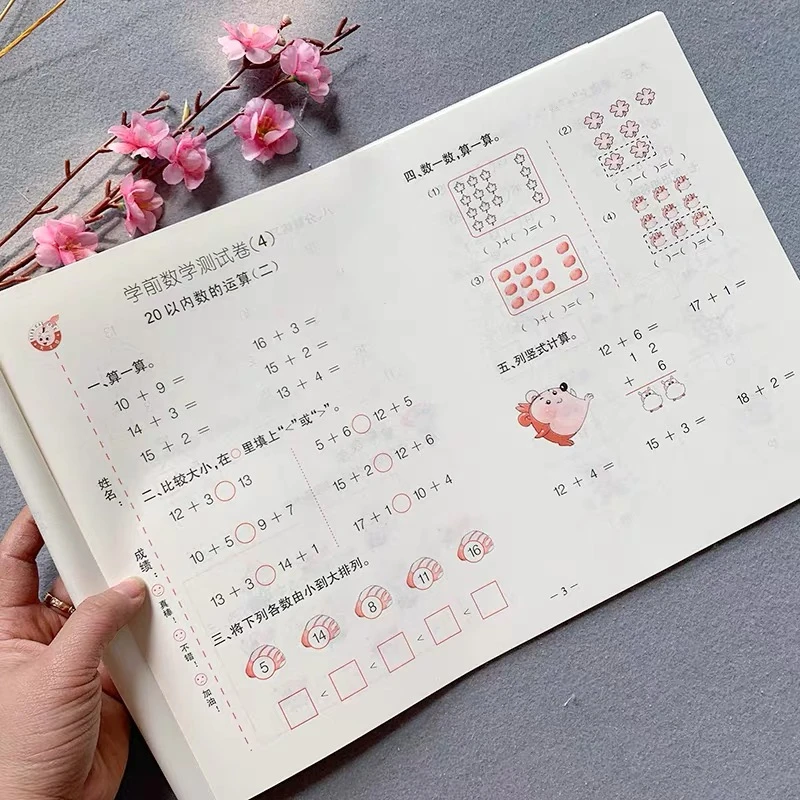 学前数学测试卷(4)
20以内数的运算(二)
姓名：
成绩：
真棒！
不错！
加油！
一、算一算。
10 + 9 =
16 + 3 =
14 + 3 =
15 + 2 =
15 + 2 =
13 + 4 =
二、比较大小，在○里填上“<”或“>”。
12 + 3○13
5 + 6○12 + 5
10 + 5○9 + 7
15 + 2○12 + 6
13 + 3○14 + 1
17 + 1○10 + 4
三、将下列各数由小到大排列。
5 14 8 11 16
□<□<□<□<□
四、数一数，算一算。
(1)
( )+( )=( )
(2)
( )-( )=( )
(3)
( )+( )=( )
(4)
( )-( )=( )
五、列竖式计算。
12 + 6 =
17 + 1 =
1 2
+ 6
18 + 2 =
15 + 3 =
12 + 4 =
－3－